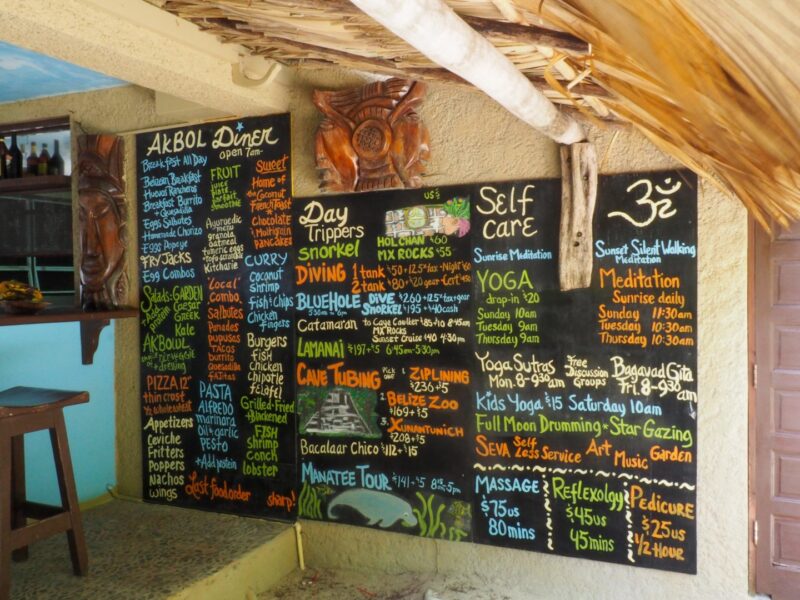 AKBOL DINER
open 7am-
Breakfast All Day
Belizean Breakfast
Huevos Rancheros
Breakfast Burrito
Quesadilla
Eggs Salbutes
Homemade Chorizo
Eggs Popeye
Fry Jacks
Egg Combos
Salads-GARDEN
Caesar
GREEK
Kale
AKBOWL
PIZZA 12"
thin crost
1/2 whole wheat
Appetizers
Ceviche
Fritters
Poppers
Nachos
wings
FRUIT
juice
bowl
parfait
smoothie
Ayurvedic
menu
granola
oatmeal
tumeric eggs
Kitcharie
Local
Combo
salbutes
Panades
pupusas
TACOS
burrito
Quesadilla
FAJITAS
PASTA
ALFREDO
marinara
oil+garlic
PESTO
+Add protein
Sweet
Home of
the Coconut
French Toast
*Chocolate
*Multigrain
PANCAKES
CURRY
Coconut
shrimp
fish & chips
Chicken
fingers
Burgers
fish
Chicken
Chipotle
+falafel
Grilled-Fried
+Blackened
FISH
shrimp
conch
lobster
Last food order sharp!
Day
Trippers
US$
snorkel
HOL CHAN $60
MX ROCKS $55
DIVING 1 tank $50+12.5% tax-Night $60
2 tank $80+
BLUEHOLE DIVE $260+12.5% tax+gear
SNORKEL $195+$40 cash
Catamaran to Caye Caulker
MX ROCKS
Sunset Cruise
LAMANAI $197+$15 6:45am-5:30pm
CAVE TUBING Pick
one
+ ZIPLINING
$236+$15
+BELIZE ZOO
$169+$15
+XUNANTUNICH
$208+$15
Bacalaar Chico $112+$15
MANATEE TOUR $141+$15 8:45-5pm
Self
CARE
Sunrise Meditation
YOGA
drop-in $20
Sunday 10am
Tuesday 9am
Thursday 9am
ॐ
Sunset Silent Walking
Meditation
Meditation
Sunrise daily
Sunday 11:30am
Tuesday 10:30am
Thursday 10:30am
Yoga Sutras
Mon. 8-9:30am
Free
Discussion
Groups
Bhagavad Gita
Fri. 8-9:30am
Kids Yoga $15 Saturday 10am
Full Moon Drumming * Star Gazing
SEVA Self
Less Service Art
Music Garden
MASSAGE
$75us
80mins
Reflexolgy
$45us
45mins
PEDICURE
$25us
1/2 Hour